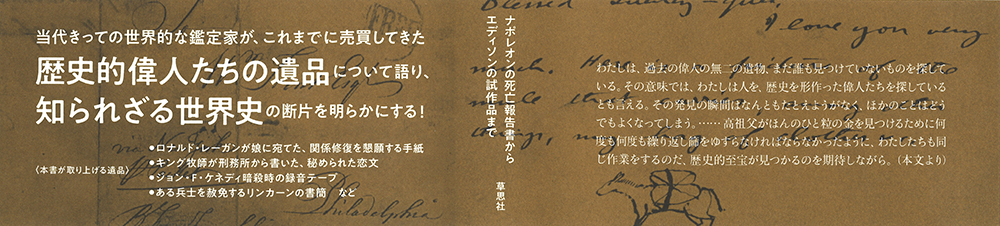 当代きっての世界的な鑑定家が、これまでに売買してきた
歴史的偉人たちの遺品について語り、
知られざる世界史の断片を明らかにする!
〈本書が取り上げる遺品〉
●ロナルド・レーガンが娘に宛てた、関係修復を懇願する手紙
●キング牧師が刑務所から書いた、秘められた恋文
●ジョン・F・ケネディ暗殺時の録音テープ
●ある兵士を赦免するリンカーンの書簡 など
Philadelphia
ナポレオンの死亡報告書から
エディソンの試作品まで
草思社
I love you very
much.
わたしは、過去の偉人の無二の遺物、まだ誰も見つけていないものを探して
いる。その意味では、わたしは人を、歴史を形作った偉人たちを探している
とも言える。その発見の瞬間はなんともたとえようがなく、ほかのことはどう
でもよくなってしまう。……高祖父がほんのひと粒の金を見つけるために何
度も何度も繰り返し篩をゆすらなければならなかったように、わたしたちも同
じ作業をするのだ、歴史的至宝が見つかるのを期待しながら。（本文より）